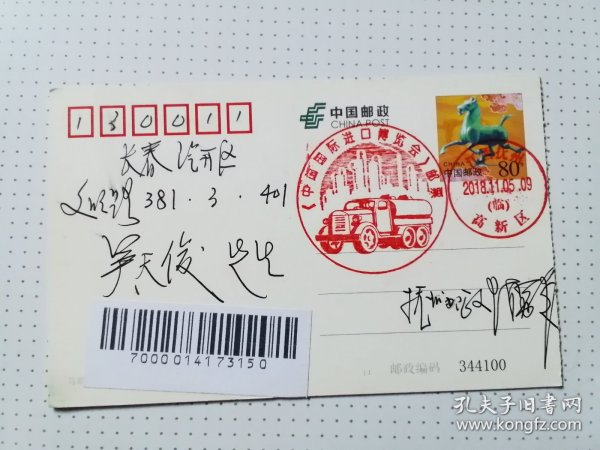 130011
中国邮政
CHINA POST
CHINA
中国邮政
80分
《中国国际进口博览会》邮展
抚州
2018.11.05.09
(临)
高新区
长春 汽开区
381.3.401
吴天俊 先生
抚州邮政
7000014173150
邮政编码 344100
孔夫子旧书网
www.kongfz.com